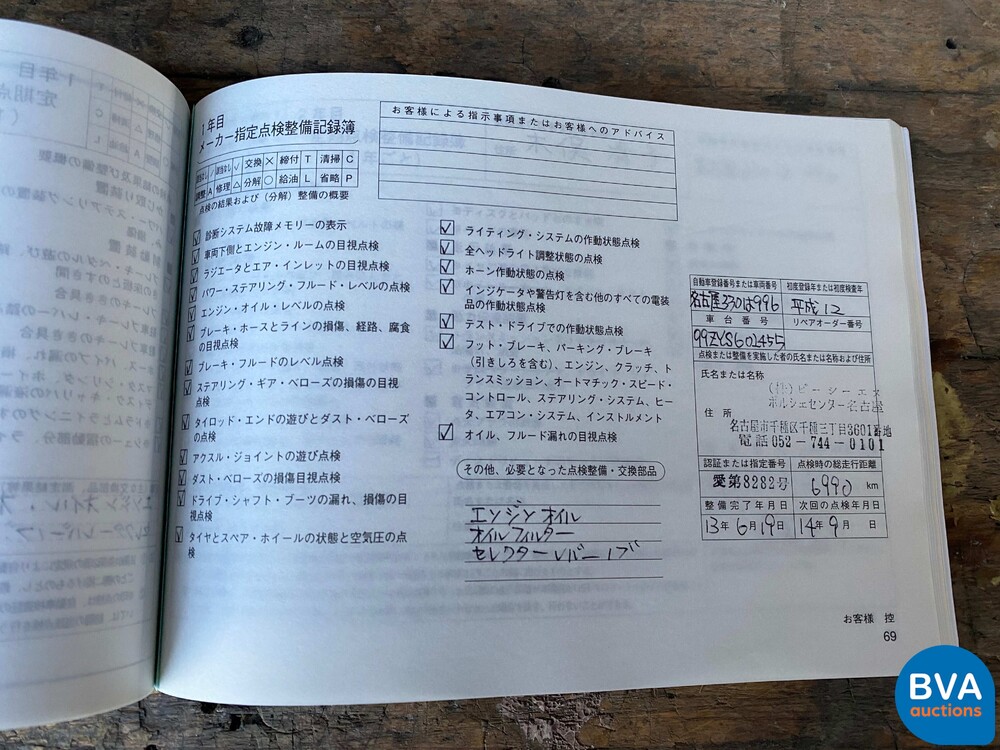 1年目
メーカー指定点検整備記録簿
交換 × 締付 T 清掃 C
調整 A 修理 △ 分解 ○ 給油 L 省略 P
点検の結果および（分解）整備の概要
お客様による指示事項またはお客様へのアドバイス
診断システム故障メモリーの表示
車両下側とエンジン・ルームの目視点検
ラジエータとエア・インレットの目視点検
パワー・ステアリング・フルード・レベルの点検
エンジン・オイル・レベルの点検
ブレーキ・ホースとラインの損傷、経路、腐食
の目視点検
ブレーキ・フルードのレベル点検
ステアリング・ギア・ベローズの損傷の目視
点検
タイロッド・エンドの遊びとダスト・ベローズ
の点検
アクスル・ジョイントの遊び点検
ダスト・ベローズの損傷目視点検
ドライブ・シャフト・ブーツの漏れ、損傷の目
視点検
タイヤとスペア・ホイールの状態と空気圧の点
検
ライティング・システムの作動状態点検
全ヘッドライト調整状態の点検
ホーン作動状態の点検
インジケータや警告灯を含む他のすべての電装
品の作動状態点検
テスト・ドライブでの作動状態点検
フット・ブレーキ、パーキング・ブレーキ
（引きしろを含む）、エンジン、クラッチ、ト
ランスミッション、オートマチック・スピード・
コントロール、ステアリング・システム、ヒー
タ、エアコン・システム、インストルメント
オイル、フルード漏れの目視点検
その他、必要となった点検整備・交換部品
エンジンオイル
オイルフィルター
セレクターレバーノブ
自動車登録番号または車両番号 初度登録年または初度検査年
名古屋330は996 平成12
車台番号 リペアオーダー番号
99ZYS602455
点検または整備を実施した者の氏名または名称および住所
氏名または名称
(株)ピーシーエス
ポルシェセンター名古屋
住所
名古屋市千種区千種三丁目3601番地
電話 052-744-0101
認証または指定番号 点検時の総走行距離
愛第8282号 6990 km
整備完了年月日 次回の点検年月日
13年6月19日 14年9月 日
お客様 控
69
BVA
auctions